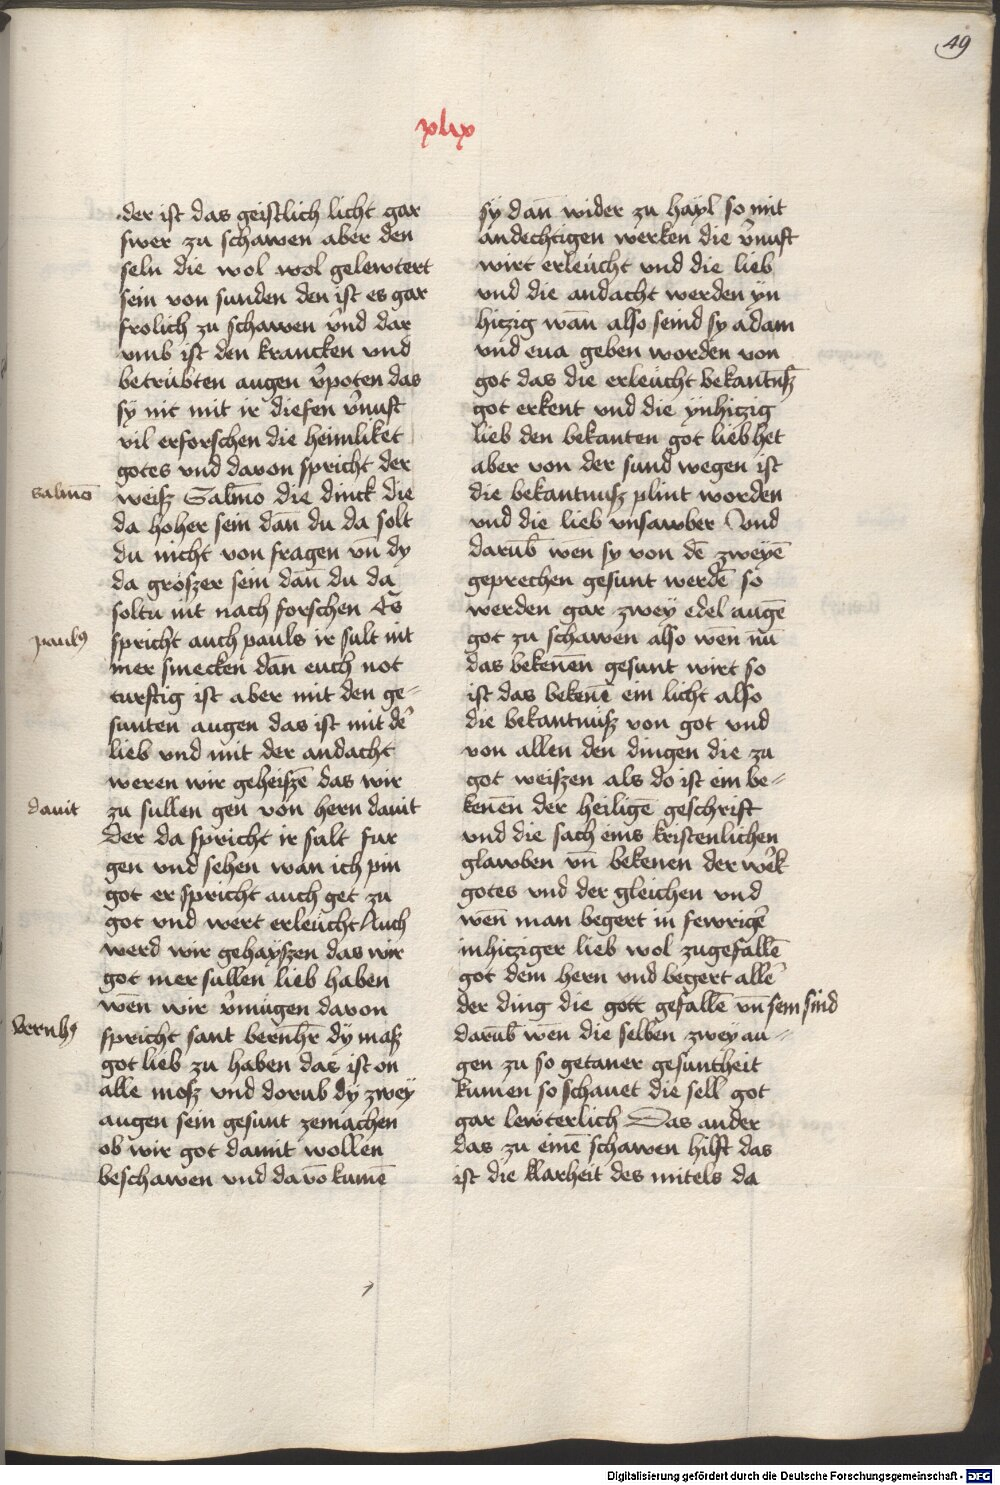 49
xlix
der ist das geistlich licht gar
swer zu schawen aber den
seln die wol wol gelewtert
sein von sunden den ist es gar
frolich zu schawen v̄nd dar
vmb ist den krancken vnd
betrubten augen v̄poten das
sy nit mit ir diefen v̄nuft
vil erforschen die heimliket
gotes vnd davon spricht der
salmō
weisz Salmo die dinck die
da hoher sein dan̄ du da solt
du nicht von fragen vn̄ dy
da groszer sein dan̄ du da
soltu nit nach forschen Es
paulꝯ
spricht auch pauls ir sult nit
mer smecken dan̄ euch not
turftig ist aber mit den ge⸗
sunten augen das ist mit dē
lieb vnd mit der andacht
weren wir geheiszē das wir
dauit
zu sullen gen von hern dauit
Der da spricht ir sult fur
gen vnd sehen wan ich pin
got er spricht auch get zu
got vnd wert erleucht Auch
werd wir gehayszen das wir
got mer sullen lieb haben
wen̄ wir v̄mugen davon
bernhꝯ
spricht sant bern̄hr̄ dy masz
got lieb zu haben das ist on
alle mosz vnd dorub dy zwey
augen sein gesunt zemachen
ob wir got damit wollen
beschawen vnd davō kumē
sy dan̄ wider zu hayl so mit
andechtigen werken die v̄nuft
wirt erleucht vnd die lieb
vnd die andacht werden yn
hiczig wan̄ also seind sy adam
vnd eua geben worden von
got das die erleucht bekantn̄sz
got erkent vnd die ynhiczig
lieb den bekanten got liebhet
aber von der sund wegen ist
die bekantnusz plint worden
vnd die lieb vnsawber Vnd
darub̄ wen̄ sy von dē zweyē
geprechen gesunt werdē so
werden gar zwey edel augē
got zu schawen also wen̄ nu
das beken̄en gesunt wirt so
ist das beken̄ē ein licht also
die bekantnusz von got vnd
von allen den dingen die zu
got weiszen als do ist ein be⸗
ken̄en der heiligē geschrift
vnd die sach eins kristenlichen
glawben vn̄ bekenen der w̄ek
gotes vnd der gleichen vnd
wen̄ man begert in fewrigē
inhicziger lieb wol zugefallē
got dem hern vnd begert allē
der ding die gott gefallē vn̄ sem sind
darub̄ wen̄ die selben zwey au⸗
gen zu so getaner gesuntheit
kumen so schauet die sell got
gar lewterlich Das ander
das zu einē schawen hilft das
ist die klarheit des mitels da
Digitalisierung gefördert durch die Deutsche Forschungsgemeinschaft - DFG